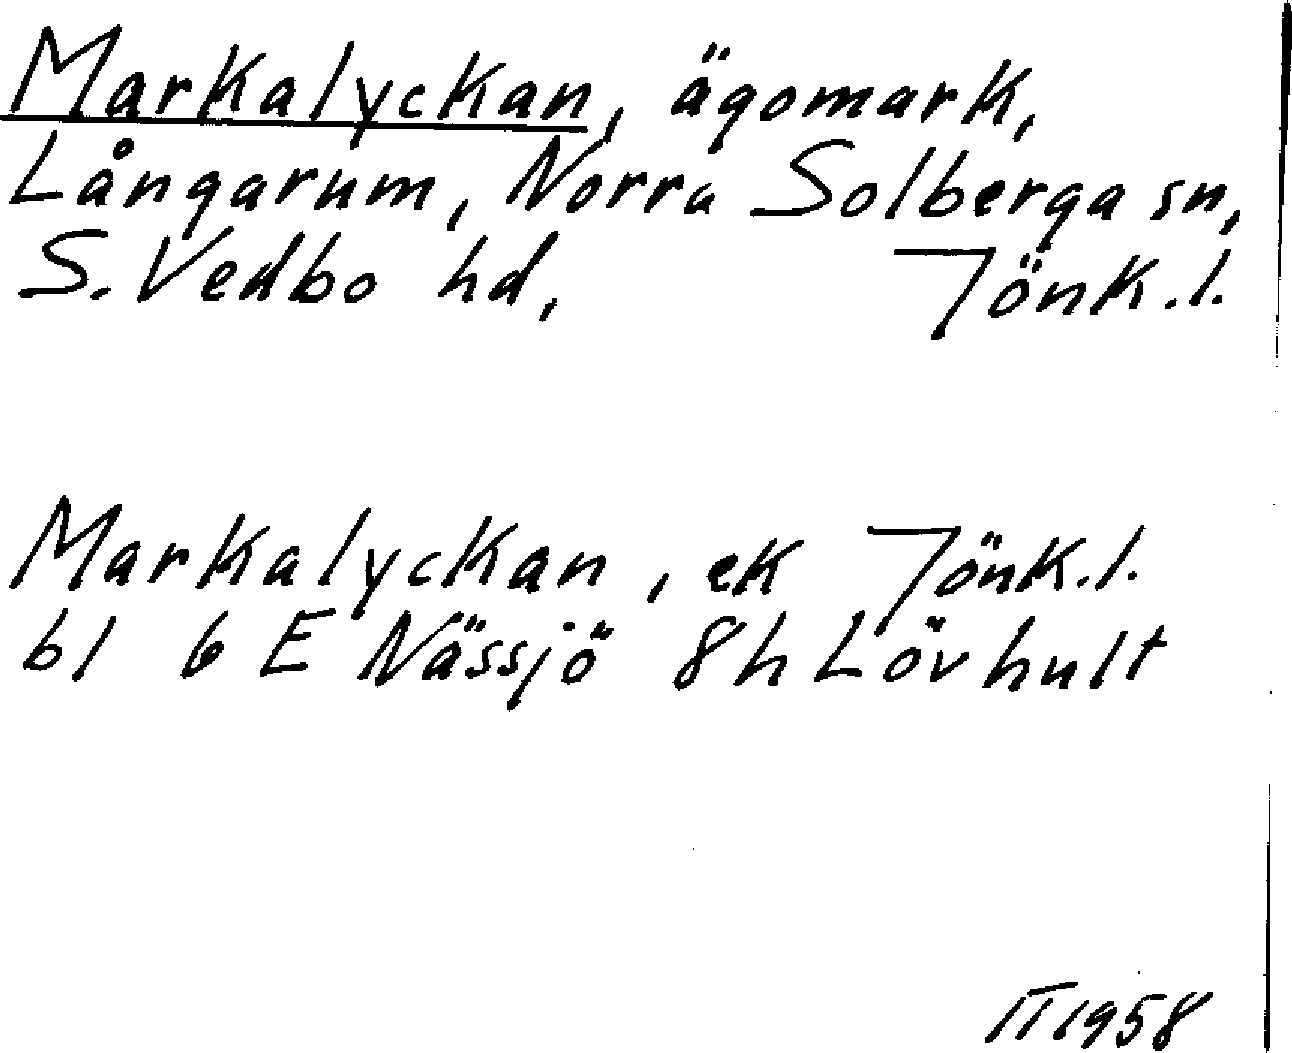 Markalyckan, ägomark,
Långarum, Norra Solberga sn,
S. Vedbo hd, Jönk.l.
Markalyckan, ek Jönk.l.
bl 6 E Nässjö 8h Lövhult
1958